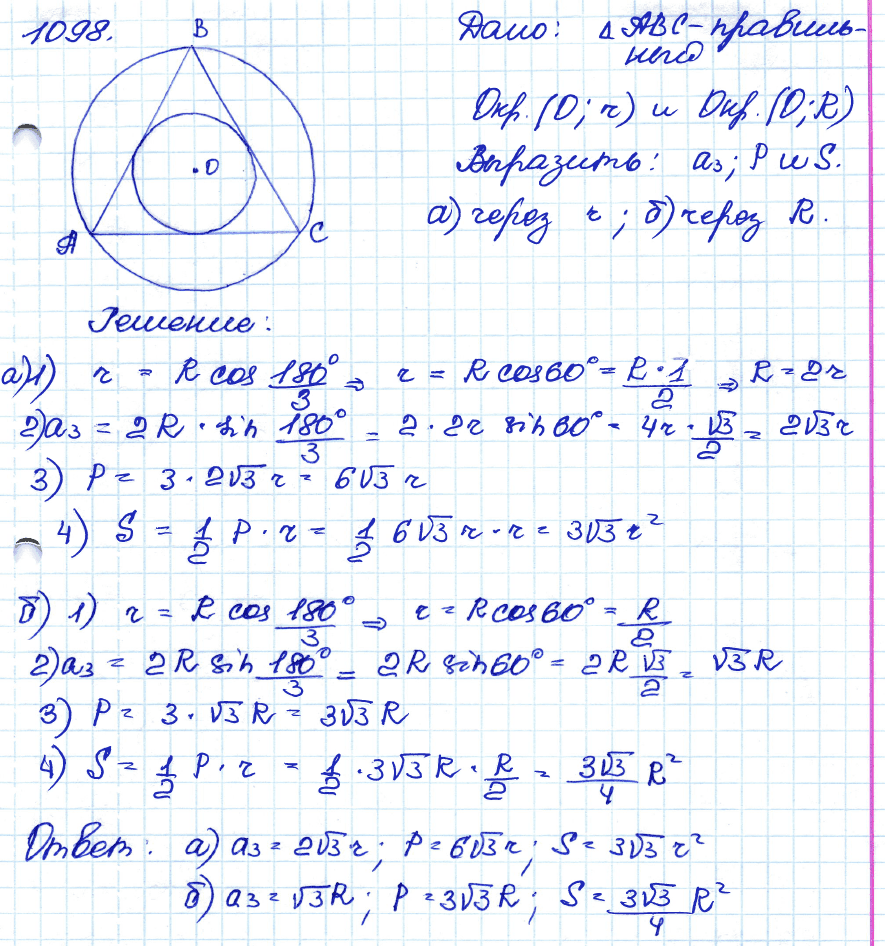 1098.
B
A
C
O
Дано: △ABC – правиль-
ный
Окр.(O; r) и Окр.(O; R)
Выразить: a₃; P и S.
а) через r; б) через R.
Решение:
а) 1) r = R cos 180°/3 ⇒ r = R cos 60° = R·1/2 ⇒ R = 2r
2) a₃ = 2R · sin 180°/3 = 2 · 2r sin 60° = 4r · √3/2 = 2√3 r
3) P = 3 · 2√3 r = 6√3 r
4) S = 1/2 P · r = 1/2 6√3 r · r = 3√3 r²
б) 1) r = R cos 180°/3 ⇒ r = R cos 60° = R/2
2) a₃ = 2R sin 180°/3 = 2R sin 60° = 2R √3/2 = √3 R
3) P = 3 · √3 R = 3√3 R
4) S = 1/2 P · r = 1/2 · 3√3 R · R/2 = 3√3/4 R²
Ответ: а) a₃ = 2√3 r; P = 6√3 r; S = 3√3 r²
б) a₃ = √3 R; P = 3√3 R; S = 3√3/4 R²